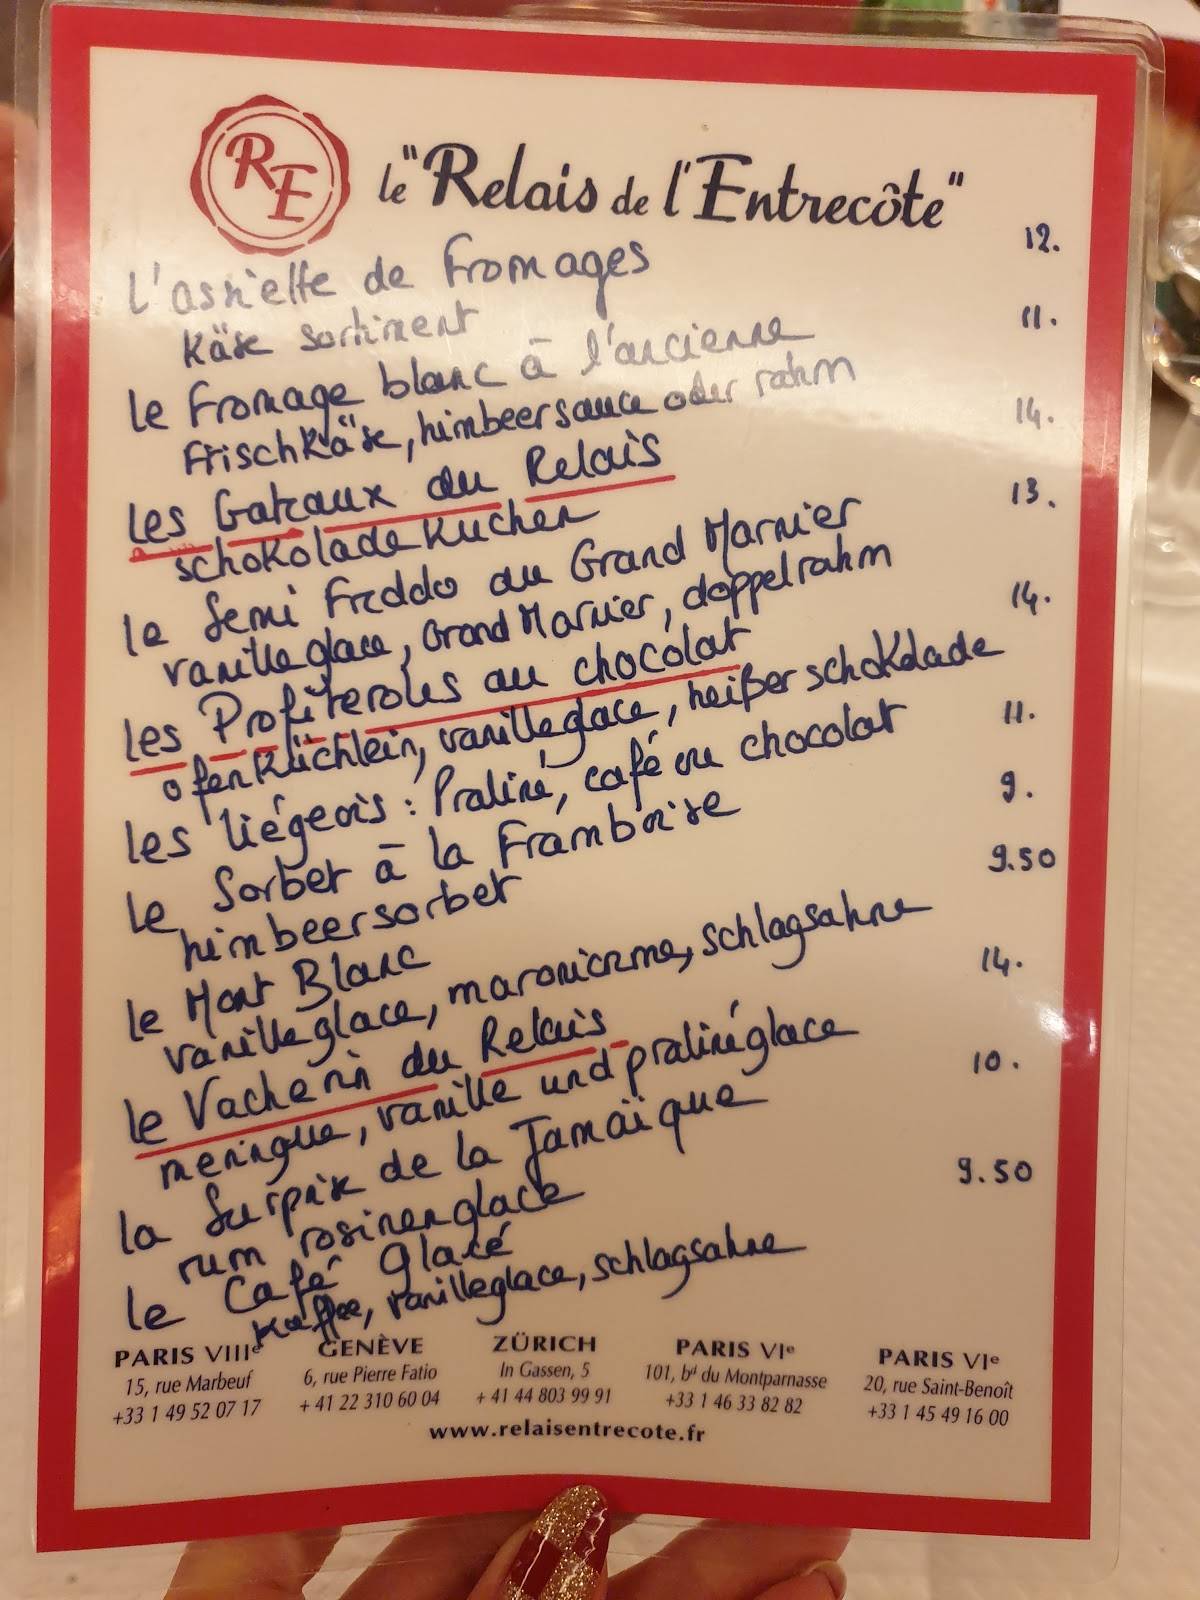 RE
le "Relais de l'Entrecôte"
L'assiette de Fromages 12.
Käse sortiment
le Fromage blanc à l'ancienne 11.
Frischkäse, himbeersauce oder rahm
les Gateaux du Relais 14.
schokoladekuchen
le Semi Freddo au Grand Marnier 13.
vanilleglace, Grand Marnier, doppelrahm
les Profiteroles au chocolat 14.
ofenküchlein, vanilleglace, heißer schokolade
les liégeois : Praliné, café ou chocolat 11.
le Sorbet à la Framboise 9.
himbeersorbet
le Mont Blanc 9.50
vanilleglace, maronicreme, schlagsahne
le Vacherin du Relais 14.
meringue, vanille und pralinéglace
la Surprise de la Jamaïque 10.
rum rosinenglace
le Café Glacé 9.50
Kaffee, vanilleglace, schlagsahne
PARIS VIIIe GENÈVE ZÜRICH PARIS VIe PARIS VIe
15, rue Marbeuf 6, rue Pierre Fatio In Gassen, 5 101, bd du Montparnasse 20, rue Saint-Benoît
+33 1 49 52 07 17 + 41 22 310 60 04 + 41 44 803 99 91 +33 1 46 33 82 82 +33 1 45 49 16 00
www.relaisentrecote.fr